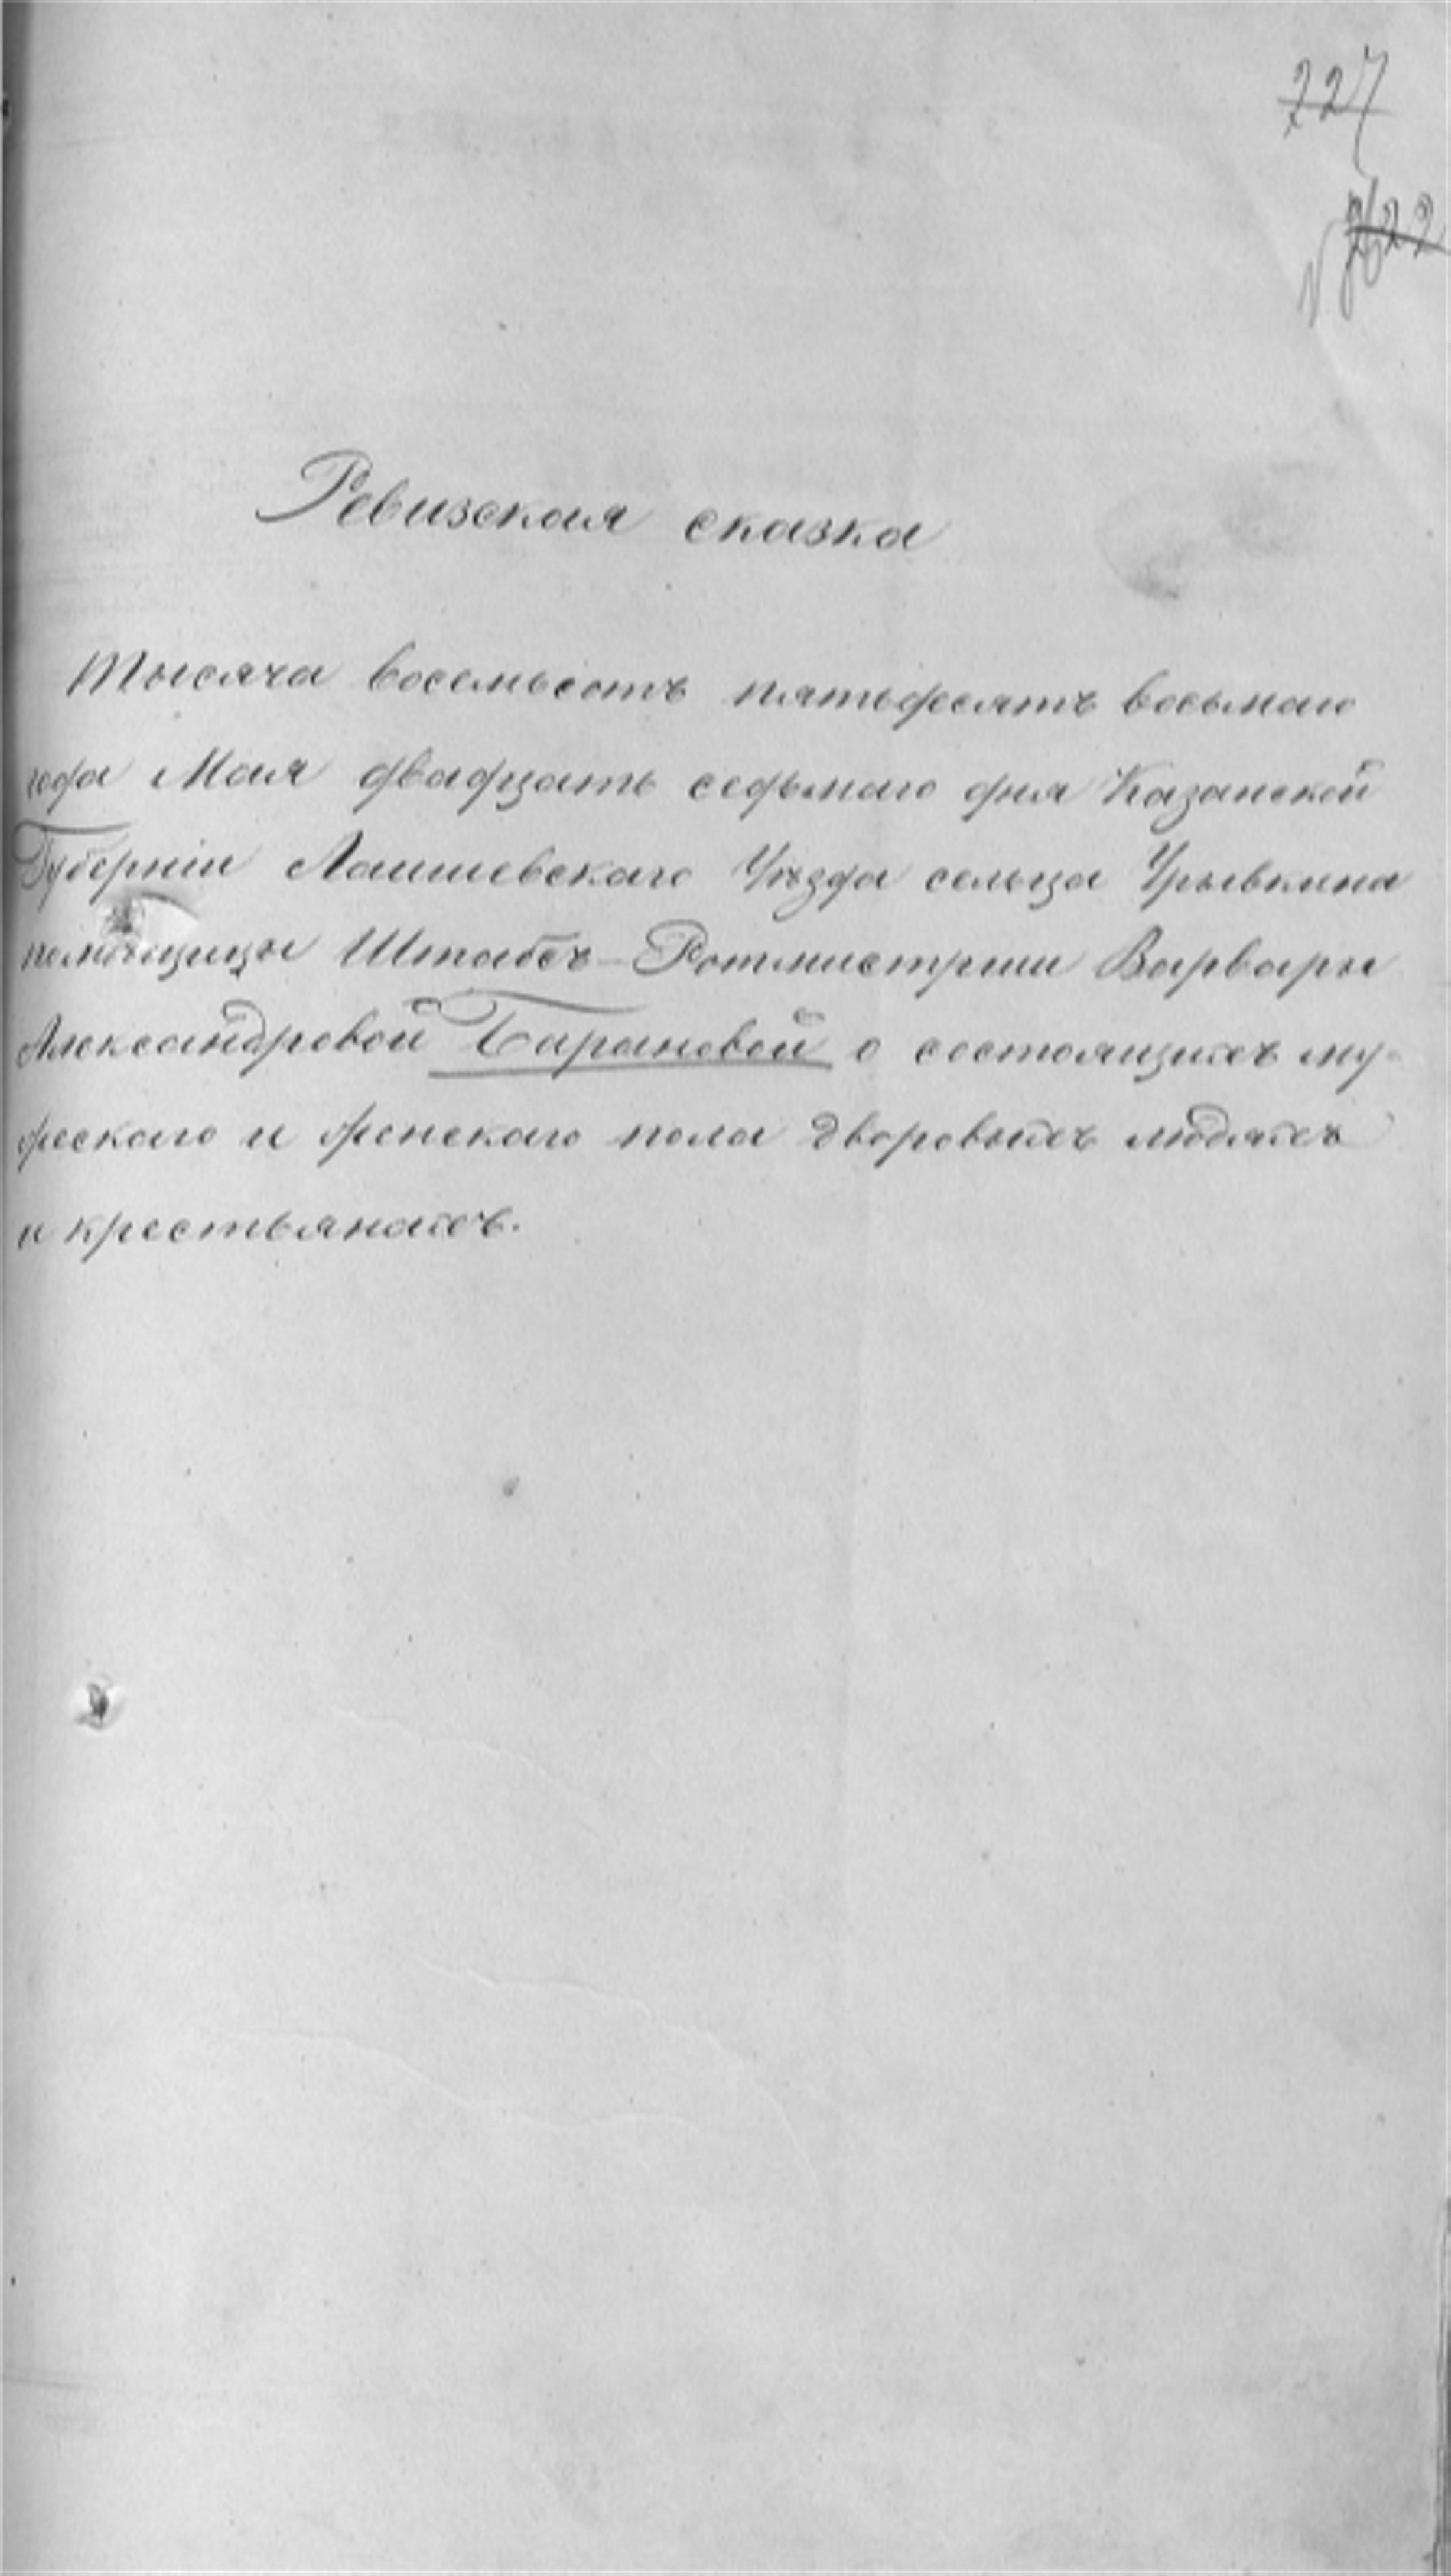 227
Ревизская сказка
Тысяча восемьсотъ пятьдесятъ восьмаго
года Мая двадцать седьмаго дня Казанской
Губерніи Лаишевскаго Уѣзда сельца Урывкина
помѣщицы Штабсъ-Ротмистрши Варвары
Александровой Барановой о состоящихъ му-
жескаго и женскаго пола дворовыхъ людяхъ
и крестьянахъ.